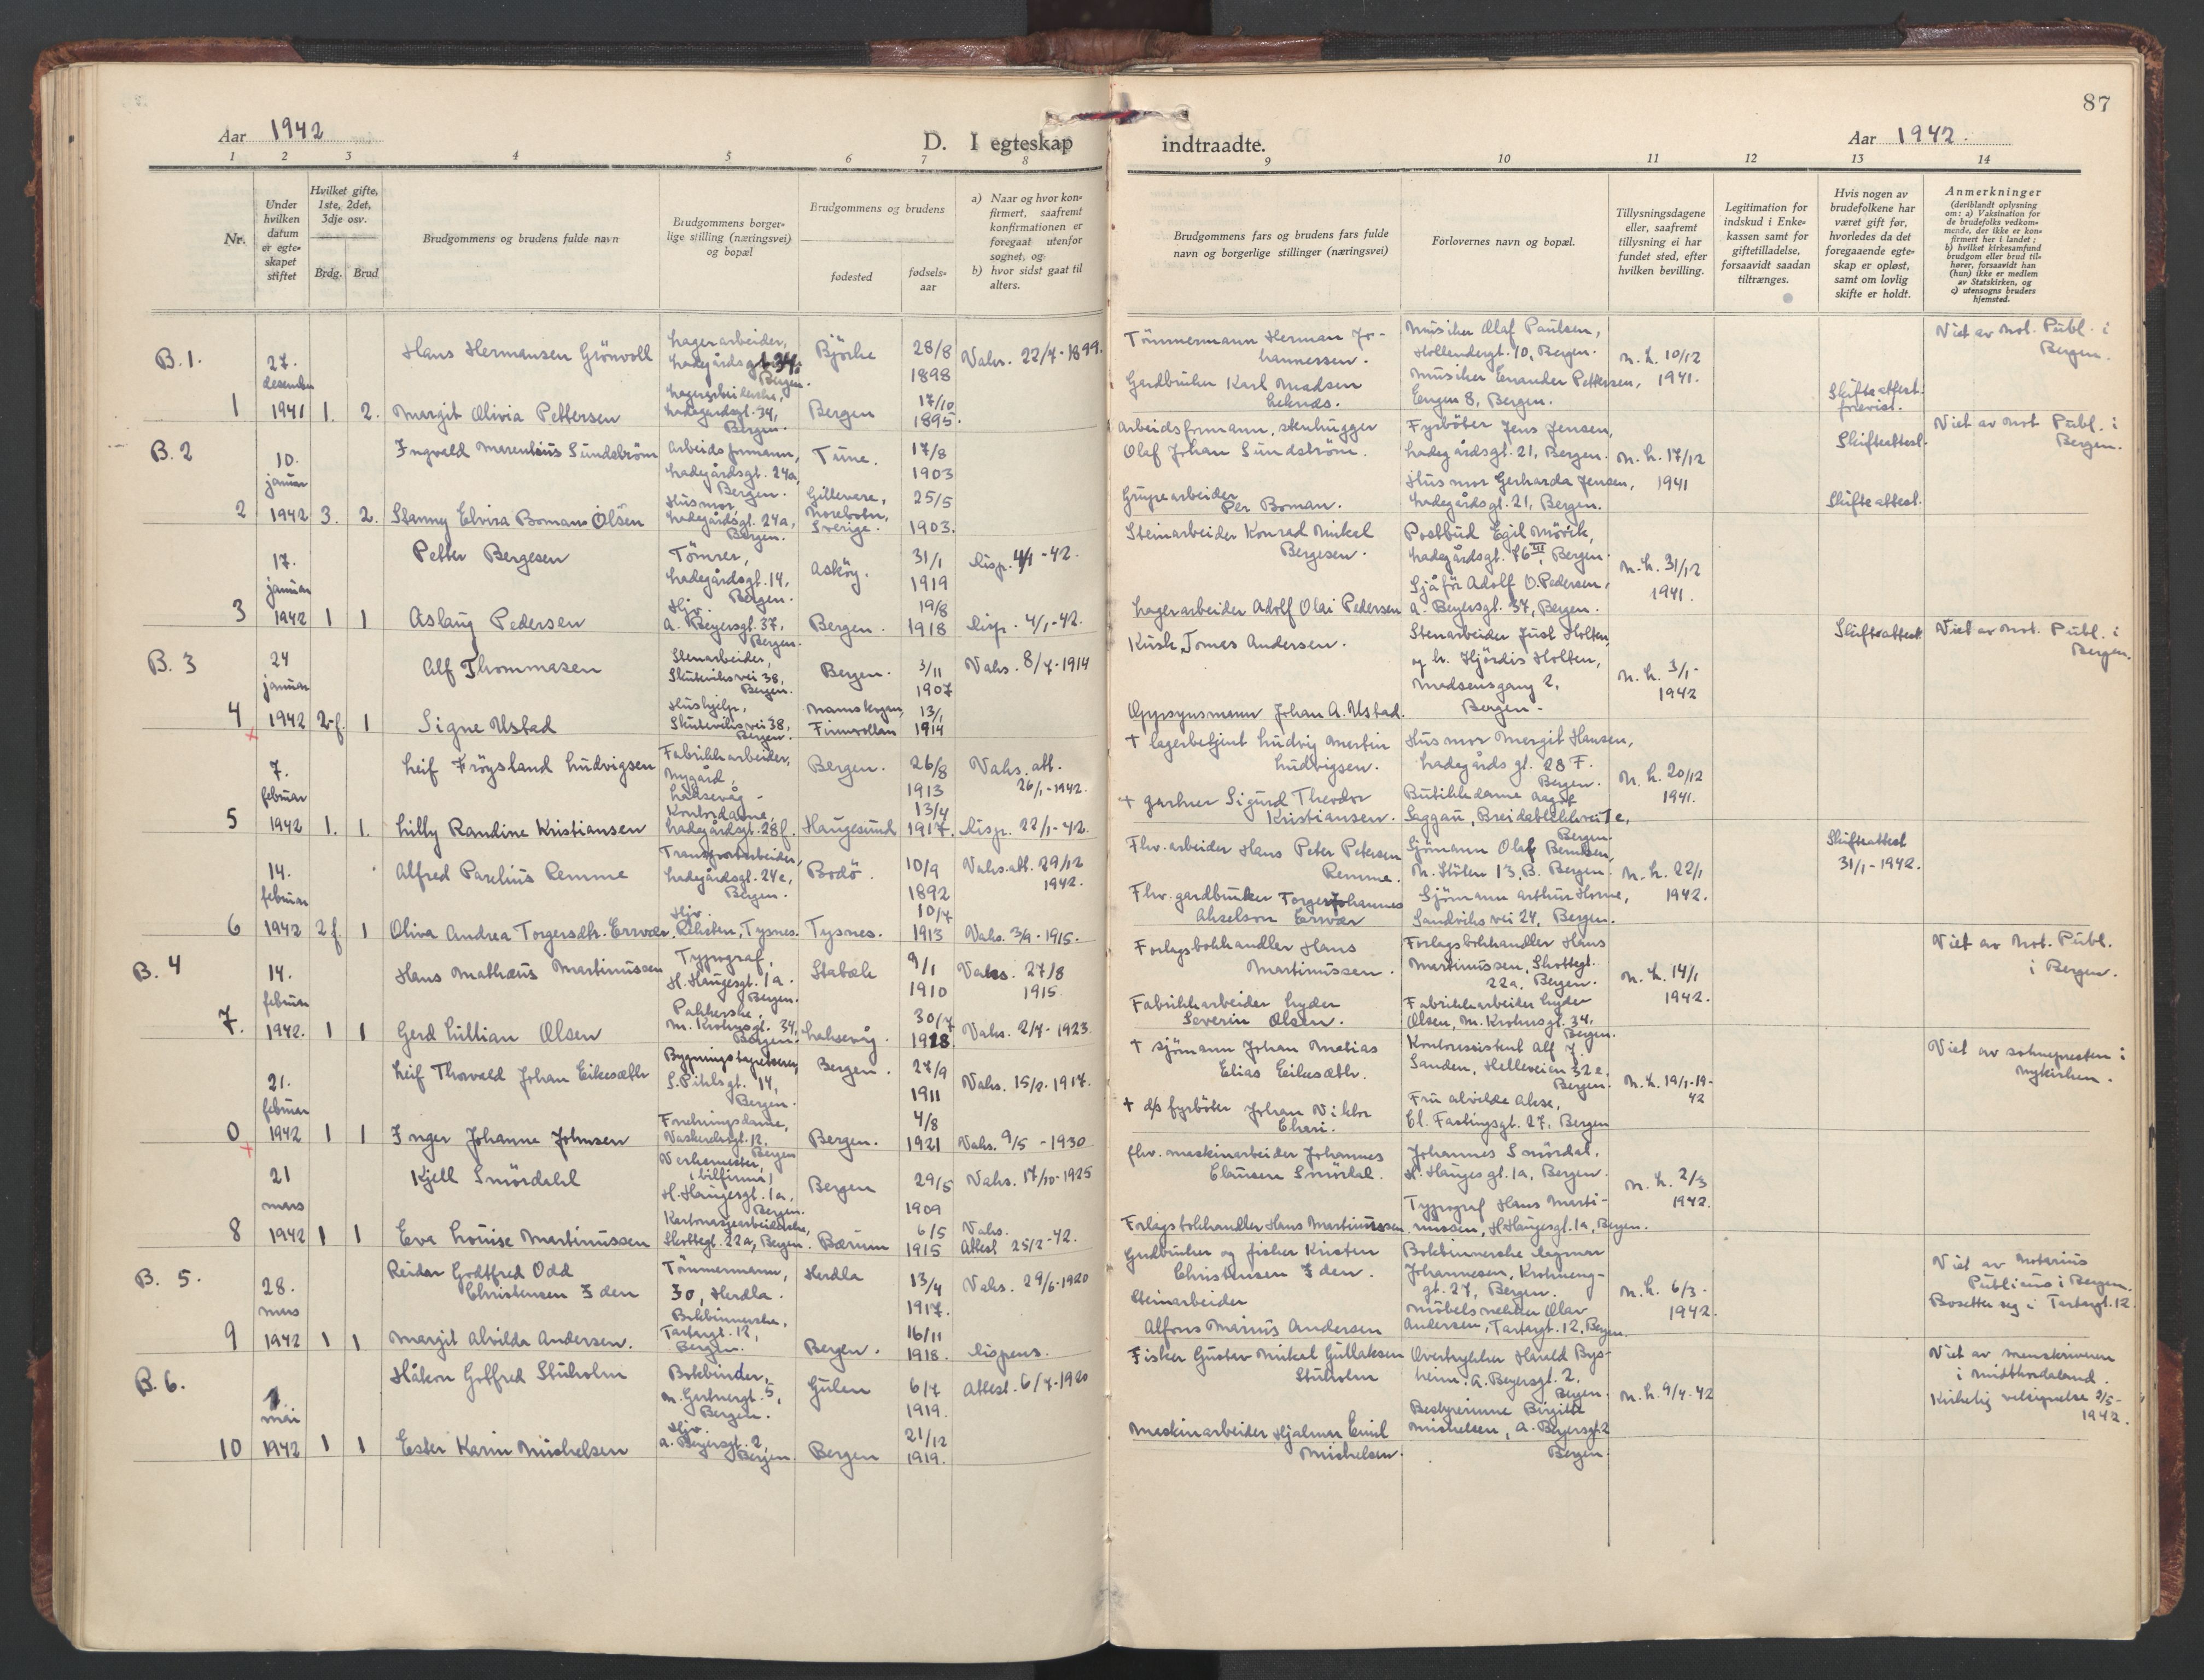 87
Aar 1942
D. I egteskap
indtraadte.
Aar 1942.
1 2 3 4 5 6 7 8
9 10 11 12 13 14
Nr.
Under
hvilken
datum
er egte-
skapet
stiftet
Hvilket gifte,
1ste, 2det,
3dje osv.
Brdg. Brud
Brudgommens og brudens fulde navn
Brudgommens borger-
lige stilling (næringsvei)
og bopæl
Brudgommens og brudens
fødested
fødsels-
aar
a) Naar og hvor kon-
firmert, saafremt
konfirmationen er
foregaat utenfor
sognet, og
b) hvor sidst gaat til
alters.
Brudgommens fars og brudens fars fulde
navn og borgerlige stillinger (næringsvei)
Forlovernes navn og bopæl.
Tillysningsdagene
eller, saafremt
tillysning ei har
fundet sted, efter
hvilken bevilling.
Legitimation for
indskud i Enke-
kassen samt for
giftetilladelse,
forsaavidt saadan
tiltrænges.
Hvis nogen av
brudefolkene har
været gift før,
hvorledes da det
foregaaende egte-
skap er opløst,
samt om lovlig
skifte er holdt.
Anmerkninger
(deriblandt oplysning
om: a) Vaksination for
de brudefolks vedkom-
mende, der ikke er kon-
firmert her i landet;
b) hvilket kirkesamfund
brudgom eller brud til-
hører, forsaavidt han
(hun) ikke er medlem
av Statskirken, og
c) utensogns bruders
hjemsted.
B. 1.
1
27.
desember
1941
1. 2.
Hans Hermansen Grönvoll
Lagerarbeider,
Ladegårdsgt. 34,
Bergen.
28/8
1898
Vaks. 22/7-1899.
Margit Olivia Pettersen
Lagerarbeiderske,
Ladegårdsgt. 34,
Bergen.
Bergen
17/10
1895.
Tömmermann Herman Jo-
hannessen.
Gardbruker Karl Madsen
Musiker Olaf Paulsen,
Hollendergt. 10, Bergen.
Musiker Enander Pettersen,
Engen 8, Bergen.
M. L. 10/12
1941.
Skifteattest
Viet av Not. Publ. i
Bergen.
B. 2
2
10.
januar
1942
3. 2.
Ingvald Marenius Sundström
Arbeidsformann,
Ladegårdsgt. 24a,
Bergen.
Tune.
17/8
1903
Stanny Elvira Boman Olsen
Husmor,
Ladegårdsgt. 24a,
Bergen.
Gillevare,
Norrbotn,
Sverige.
25/5
1903.
Arbeidsformann, stenhugger
Olaf Johan Sundström.
Grupearbeider
Per Boman.
Fyrböter Jens Jensen,
Ladegårdsgt. 21, Bergen.
Husmor Gerharda Jensen,
Ladegårdsgt. 21, Bergen.
M. L. 17/12
1941
Skifteattest.
Skifteattest.
Viet av Not. Publ. i
Bergen.
3
17.
januar
1942
1 1
Petter Bergesen
Tömrer,
Ladegårdsgt. 14,
Bergen.
Asköy.
31/1
1919
Disp. 4/1-42.
Aslaug Pedersen
Hjv.
A. Beyersgt. 37,
Bergen.
Bergen.
19/8
1918
Disp. 4/1-42.
Steinarbeider Konrad Mikal
Bergesen.
Lagerarbeider Adolf Olai Pedersen
Postbud Egil Mörck,
Ladegårdsgt. 76 III, Bergen.
Sjåför Adolf O. Pedersen,
A. Beyersgt. 37, Bergen.
M. L. 31/12
1941.
B. 3
4
24
januar
1942
2-f. 1
Alf Thommasen
Stenarbeider,
Skuteviksvei 38,
Bergen.
Bergen.
3/11
1907
Vaks. 8/7-1914
Signe Ustad
Hushjelp,
Skuteviksvei 38,
Bergen.
13/1
1914
Kusk Tomas Andersen.
Oppsynsmann Johan A. Ustad.
Stenarbeider Just Holten,
og h. Hjördis Holten,
Madsensgang 2,
Bergen.
M. L. 3/1-
1942
Skifteattest
Viet av Not. Publ. i
Bergen.
5
7.
februar
1942
1. 1.
Leif Fröysland Ludvigsen
Fabrikkarbeider,
Nygård,
Laksevåg.
Bergen.
26/8
1913
Vaks. att.
26/1-1942.
Lilly Randine Kristiansen
Kontordame,
Ladegårdsgt. 28f.
Haugesund
13/4
1917.
Disp. 22/1-42.
+ lagerbetjent Ludvig Martin
Ludvigsen.
+ gartner Sigurd Theodor
Kristiansen.
Husmor Margit Hansen,
Ladegårdsgt. 28 F.
Bergen.
Butikkdame Aagot
Saggau, Breidablikkvei 7e,
Bergen.
M. L. 20/12
1941.
6
14.
februar
1942
2 f. 1
Alfred Parelius Remme
Transportarbeider,
Ladegårdsgt. 24e,
Bergen.
Bodö.
10/9
1892
Vaks. att. 29/12
1942.
Oliva Andrea Torgersdtr. Ervær.
Hjv.
Tysnes.
Tysnes.
10/7
1913
Vaks. 3/9-1915.
Fhv. arbeider Hans Peter Petersen
Remme.
Fhv. gardbruker Torger Johannes
Akselson Ervær
Sjömann Olaf Berntsen,
N. Stölen 13. B. Bergen.
Sjömann Arthur Horne,
Sandviksvei 24, Bergen.
M. L. 22/1
1942.
Skifteattest
31/1-1942.
B. 4
7.
14.
februar
1942.
1 1
Hans Mathæus Martinussen
Typograf,
H. Haugesgt. 1a.
Bergen.
Stabæk
9/1
1910
Vaks. 27/8
1915.
Gerd Lillian Olsen
Pakkerske,
M. Krohnsgt. 34,
Bergen.
Laksevåg.
30/7
1918.
Vaks. 2/7-1923.
Forlagsbokhandler Hans
Martinussen.
Fabrikkarbeider Lyder
Severin Olsen.
Forlagsbokhandler Hans
Martinussen, Skottegt.
22a, Bergen.
Fabrikkarbeider Lyder
Olsen, M. Krohnsgt. 34,
Bergen.
M. L. 14/1
1942.
Viet av Not. Publ.
i Bergen.
0
21.
februar
1942
1 1
Leif Thorvald Johan Eikesæth
S. Pihlsgt. 14,
Bergen.
Bergen.
27/9
1911
Vaks. 15/8-1917.
Inger Johanne Johnsen
Forretningsdame,
Vaskerelvsgt. 12,
Bergen
Bergen.
4/8
1921
Vaks. 9/5-1930
+ sjömann Johan Matias
Elias Eikesæth.
+ d/s fyrböter Johan Viktor
Kontorassistent Alf J.
Sanden, Helleveien 32e,
Bergen.
Fru Alvilde Akse,
Cl. Fastingsgt. 27, Bergen
M. L. 19/1-19-
42
Viet av soknepresten i
Nykirken.
8
21
mars
1942
1 1
Kjell Smördahl
Verksmester,
(bilfirma)
H. Haugesgt. 1a,
Bergen.
Bergen
29/5
1909
Vaks. 17/10-1925
Eva Louise Martinussen
Kartonasjearbeiderske,
Skottegt. 22a, Bergen.
Bærum
6/5
1915
Vaks.
Attest 25/2-42.
fhv. maskinarbeider Johannes
Clausen Smördal.
Forlagsbokhandler Hans Martinussen.
Johannes Smördal,
H. Haugesgt. 1a, Bergen.
Typograf Hans Marti-
nussen, H. Haugesgt. 1a, Bergen.
M. L. 2/3
1942.
B. 5.
9
28.
mars
1942
1 1
Reidar Godtfred Odd
Christensen Iden
Tömmermann,
Io, Herdla.
Herdla
13/4
1917.
Vaks. 29/6-1920
Margit Alvilda Andersen.
Bokbinnerske,
Tartargt. 12,
Bergen.
Bergen.
16/11
1918.
Dispens.
Gardbruker og fisker Kristen
Christensen Iden.
Steinarbeider
Alfons Marius Andersen
Bokbinnerske Dagmar
Johannesen, Krohneng-
gt. 27, Bergen.
Möbelsnekker Olav
Andersen, Tartargt. 12, Bergen.
M. L. 6/3-
1942.
Viet av Notarius
Publicus i Bergen.
Bosetter seg i Tartargt. 12.
B. 6.
10
1.
mai
1942
1 1
Håkon Gotfred Stuholm
Bokbinder,
Bergen.
Gulen
6/7
1919.
Attest. 6/7-1920
Ester Karin Michelsen
Hjv.
A. Beyersgt. 2,
Bergen.
Bergen
21/12
1919.
Fisker Gustav Mikal Gullaksen
Stuholm
Maskinarbeider Hjalmar Emil
Michelsen.
Overtrykker Harald Bys-
heim, A. Beyersgt. 2,
Bergen.
Bestyrerinne Birgitte
Michelsen, A. Beyersgt. 2
Bergen.
M. L. 9/4-42
Viet av sorenskriveren
i Midthordaland.
Kirkelig velsignelse 2/5-
1942.